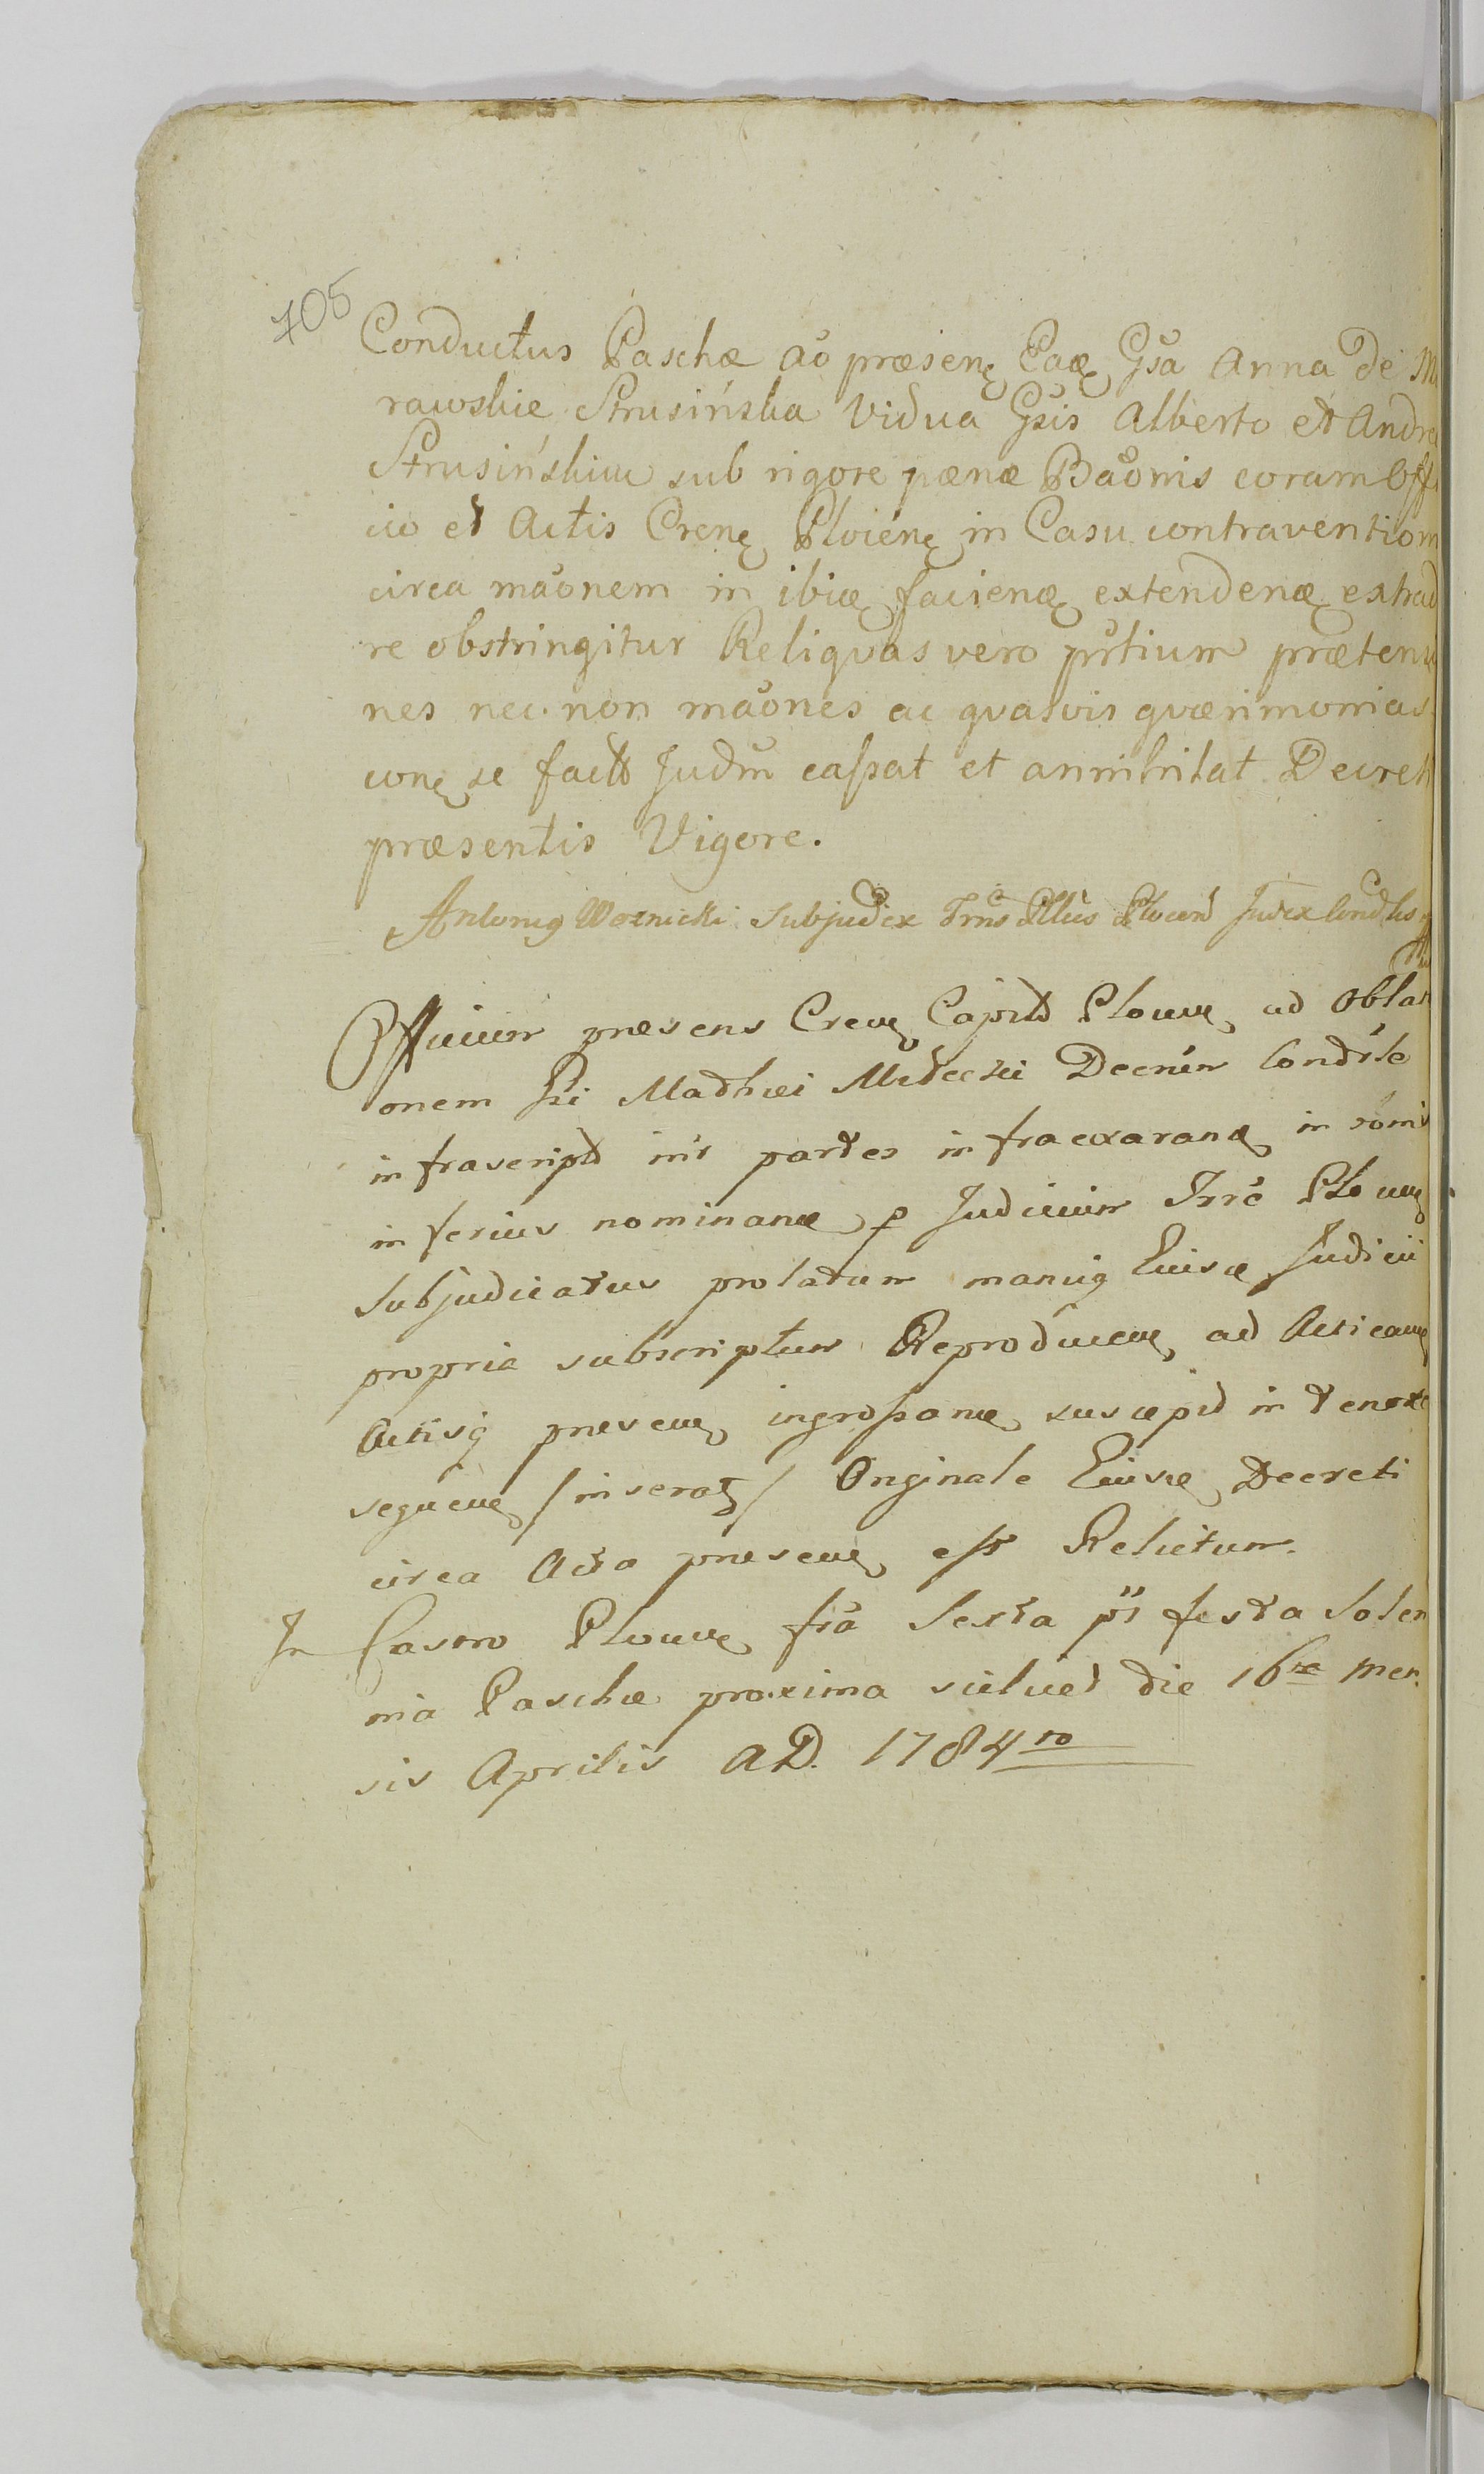 705
Conductus Paschæ aõ præsenę Eaæ Gsa Anna De M
rawskie Strusińska Vidua Gsis Alberto et Andre
Strusińskim sub rigore pænæ Baõnis coram Offi
cio et Actis Crenę Plocienę in Casu contravention
circa maõnem in ibiæ facienæ extendenæ extrad
re obstringitur Reliquas vero prtium prætensi
nes nec non maõnes ac quasvis quærimonias
conę se fact Judm cassat et annihilat Decret
præsentis Vigore.
Antonig Woznicki Subjudex Trris Plocen Judex
Officium præsens Capit Plocen ad Oblat
onem Mathæi Decrum Condsle
infrascript intr partes infraexaranæ in
inferius nominanæ p Judicium Trre Plo
Subjudicatus prolatum manuq Eiusæ Judicii
propria subscriptum Reproducen ad Acticanę
Actisq præsenę ingrossanæ suscepit in tenore
sequenę / inserat / Originale Eiusæ Decreti
circa Acta præsenę est Relictum.
In Castro Plocenę fra Sexta pt festa Solen
nia Paschæ proxima scilicet die 16ta Men
sis Aprilis A.D. 1784to